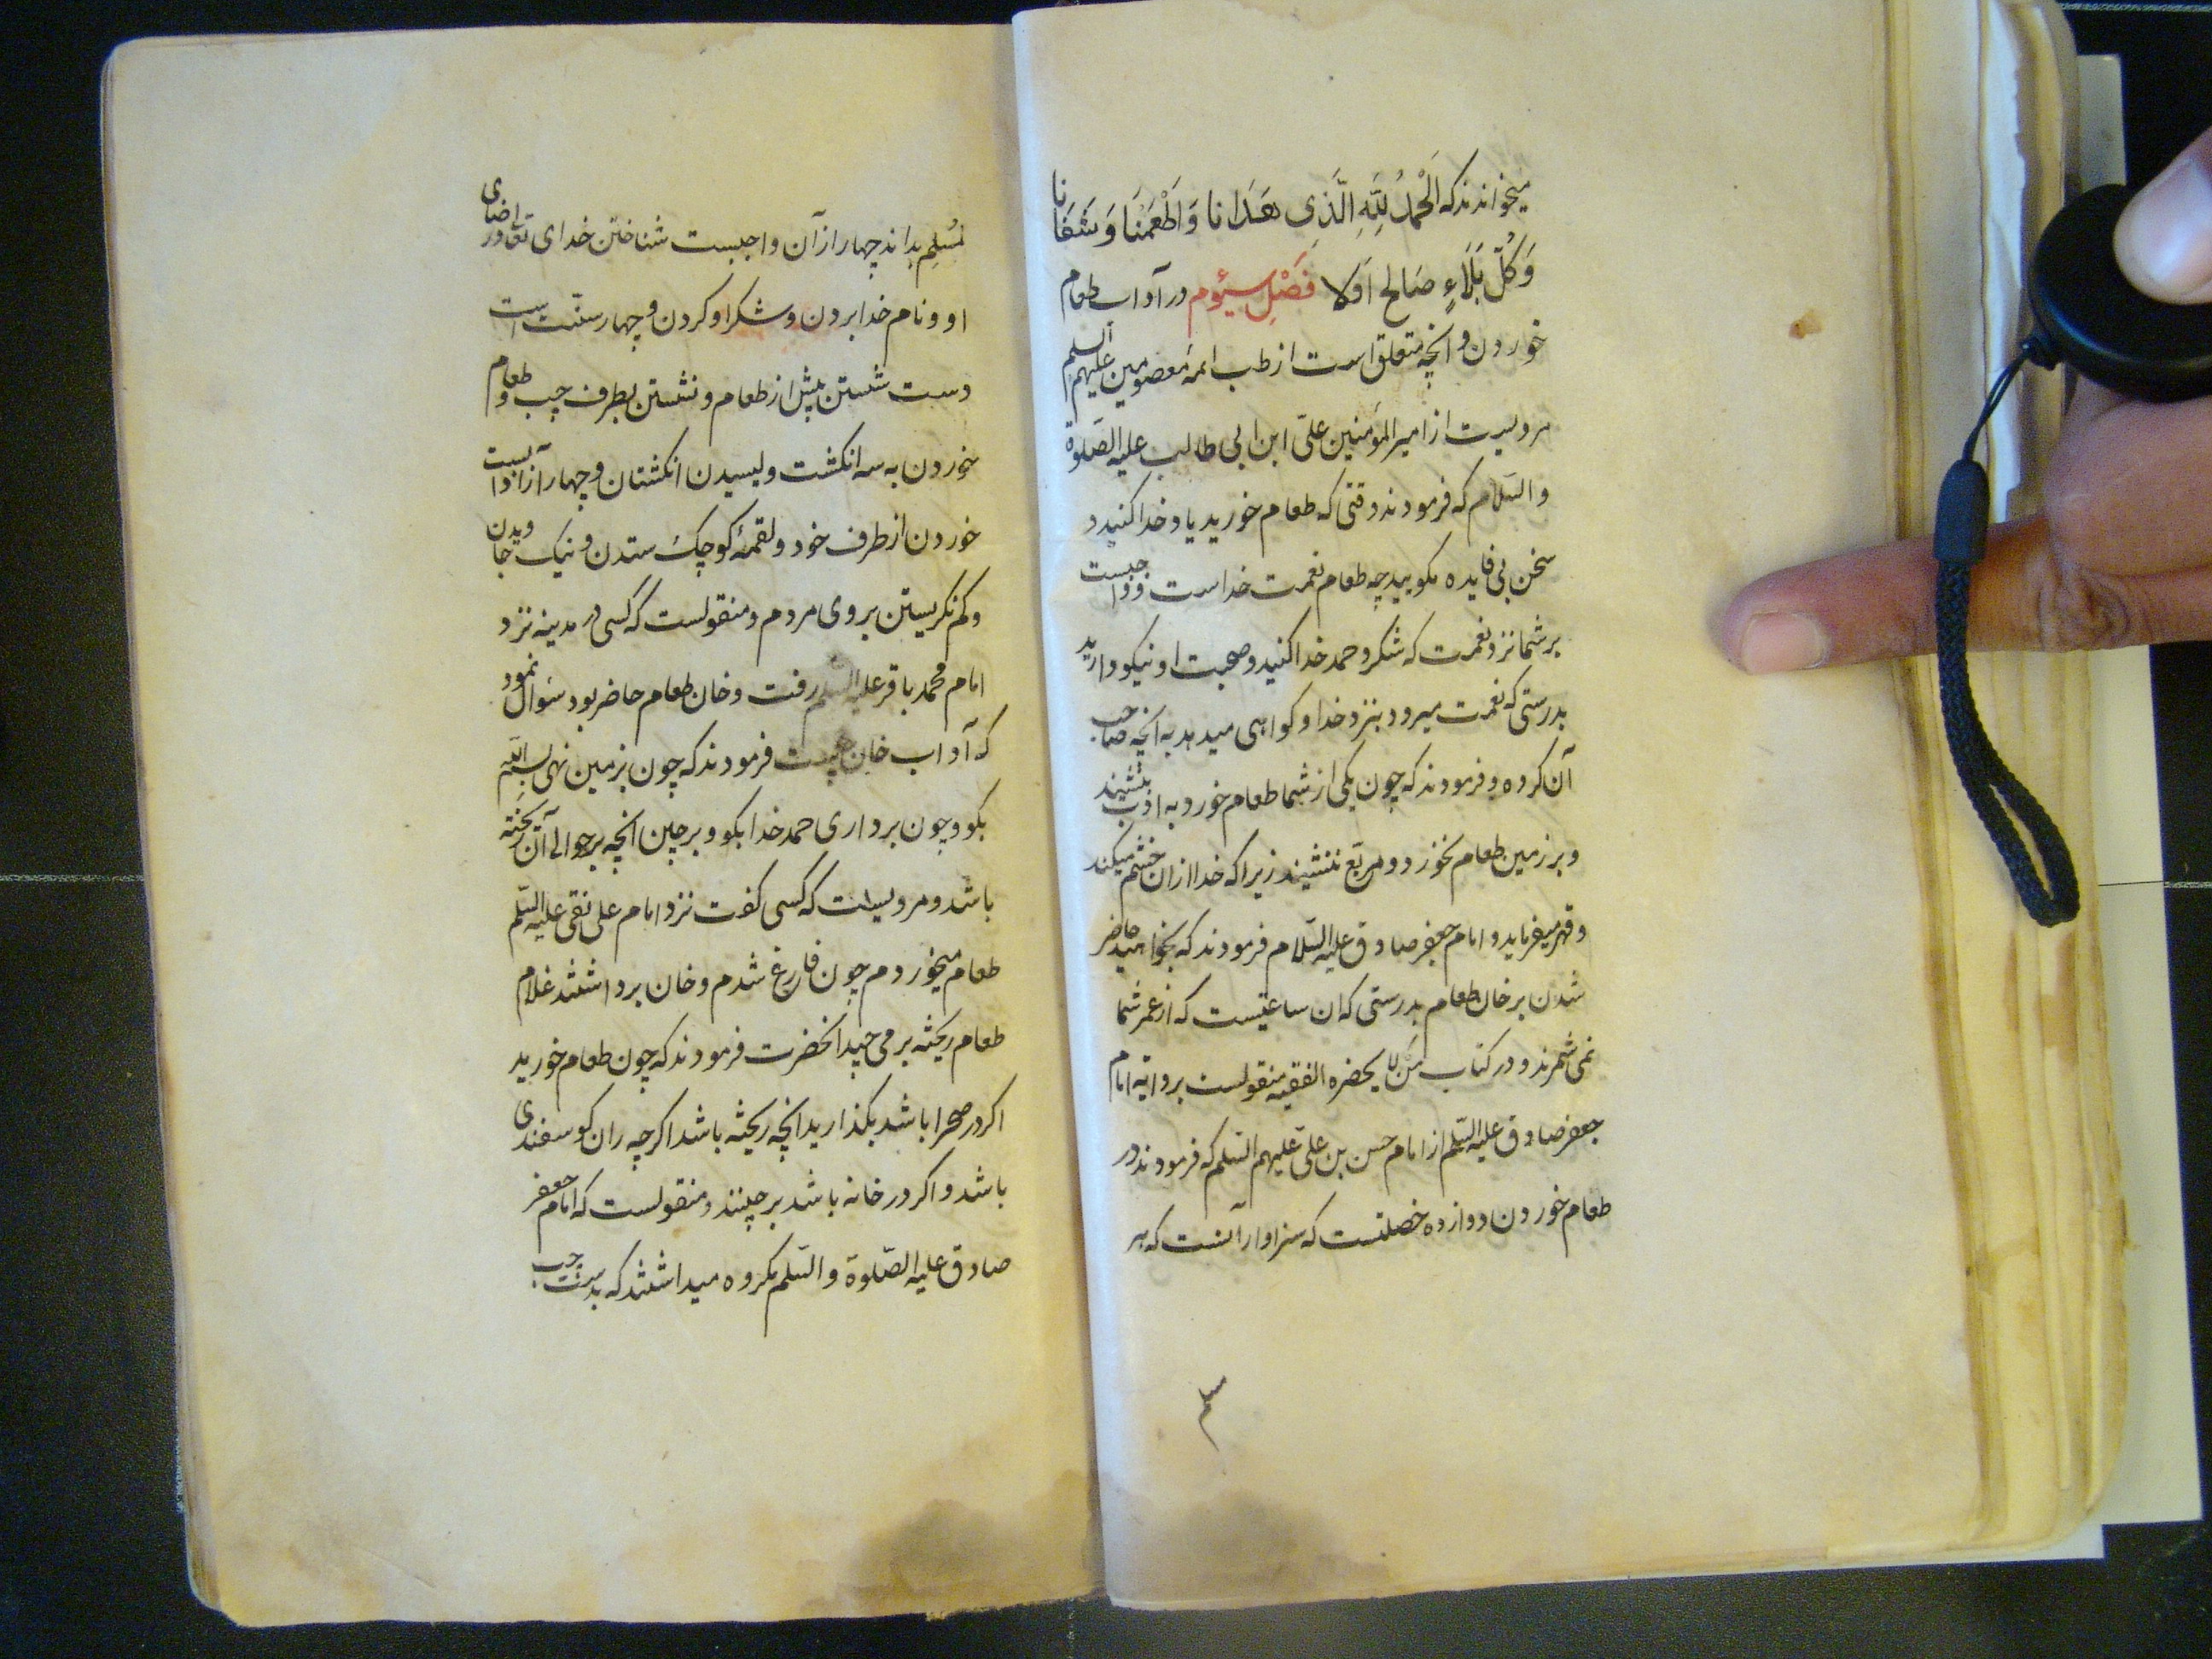 میخواندند که اَلْحَمدُ لِلّهِ الَّذِی هَدَانا وَ اَطْعَمَنَا وَ سَقَانا
وَ کُلّ بَلَاءٍ صَالح اَولا فَصْلِ سیُوم در آداب طعام
خوردن و انچه متعلق است از طب ائمه معصومین علیهم السلم
مرویست از امیر المؤمنین علیّ ابن ابی طالب علیه الصّلوة
والسّلام که فرمودند وقتی که طعام خورید یاد خدا کنید و
سخن بی فایده مکویید چه طعام نعمت خداست و واجبست
بر شما نزد نعمت که شکر و حمد خدا کنید و صحبت او نیکو دارید
بدرستی که نعمت میرود بنزد خدا و کواهی میدهد به انچه صاحب
آن کرده و فرمودند که چون یکی از شما طعام خورد به ادب بنشیند
و بر زمین طعام بخورد و مربّع ننشیند زیرا که خدا ازان خشم میکند
و قهر میفرماید و امام جعفر صادق علیه السّلام فرمودند که بخواهید حاضر
شدن بر خان طعام بدرستی که ان ساعتیست که از عمر شما
نمی شمرند و در کتاب مَن لا یحضره الفقیه منقولست بروایه امام
جعفر صادق علیه السّلم از امام حسن بن علیّ علیهم السّلم که فرمودند در
طعام خوردن دوازده خصلتست که سزاوار آنست که هر
مسلم
مُسْلِم بداند چهار از آن واجبست شناختن خدای تعا و راضی
او و نام خدا بردن و شکر او کردن و چهار سنّت است
دست شستن پیش از طعام و نشستن بطرف چپ و طعام
خوردن به سه انکشت و لیسیدن انکشتان و چهار از آدابست
خوردن از طرف خود و لقمهٔ کوچک ستدن و نیک جاویدن
و کم نکریستن بروی مردم و منقولست که کسی در مدینه نزد
امام محمد باقر علیه السّلم رفت و خان طعام حاضر بود سئوال نمود
که آداب خان چیست فرمودند که چون بزمین نهی بسم اللّه
بکو و چون برداری حمد خدا بکو و برچین انچه بر حوالی آن ریخته
باشد و مرویست که کسی کفت نزد امام علی نقی علیه السّلم
طعام میخوردم چون فارغ شدم و خان برداشتند غلام
طعام ریخته برمی چید انحضرت فرمودند که چون طعام خورید
اکر در صحرا باشد بکذارید انچه ریخته باشد اکرچه ران کوسفندی
باشد و اکر در خانه باشد برچینند و منقولست که امام جعفر
صادق علیه الصّلوة والسّلم مکروه میداشتند که بدست چپ